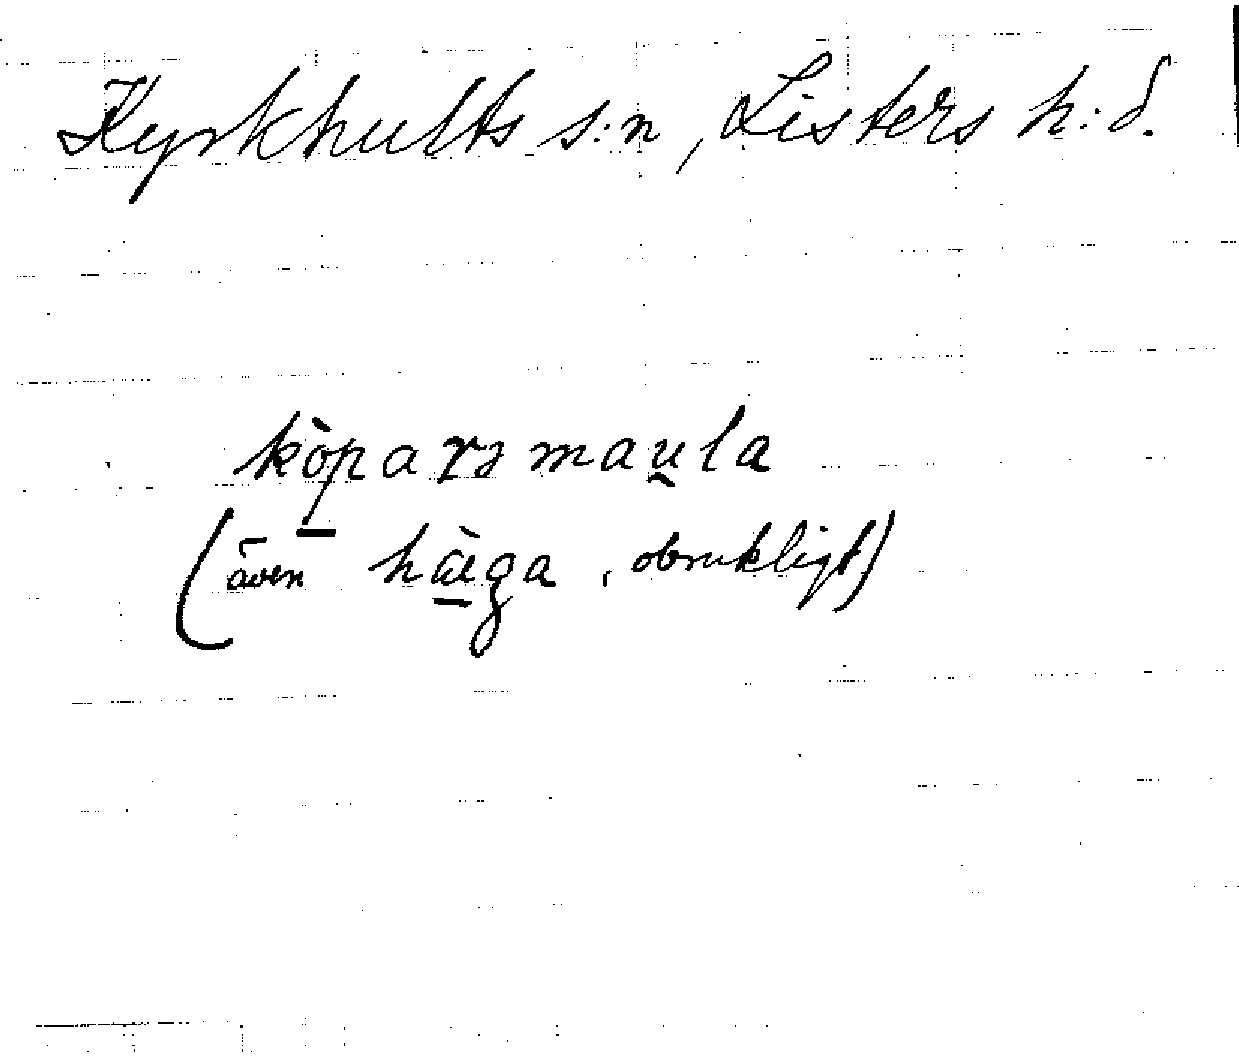 Kyrkhults s:n, Listers h:d.
kòparsmaula
(även hàega, obrukligt)